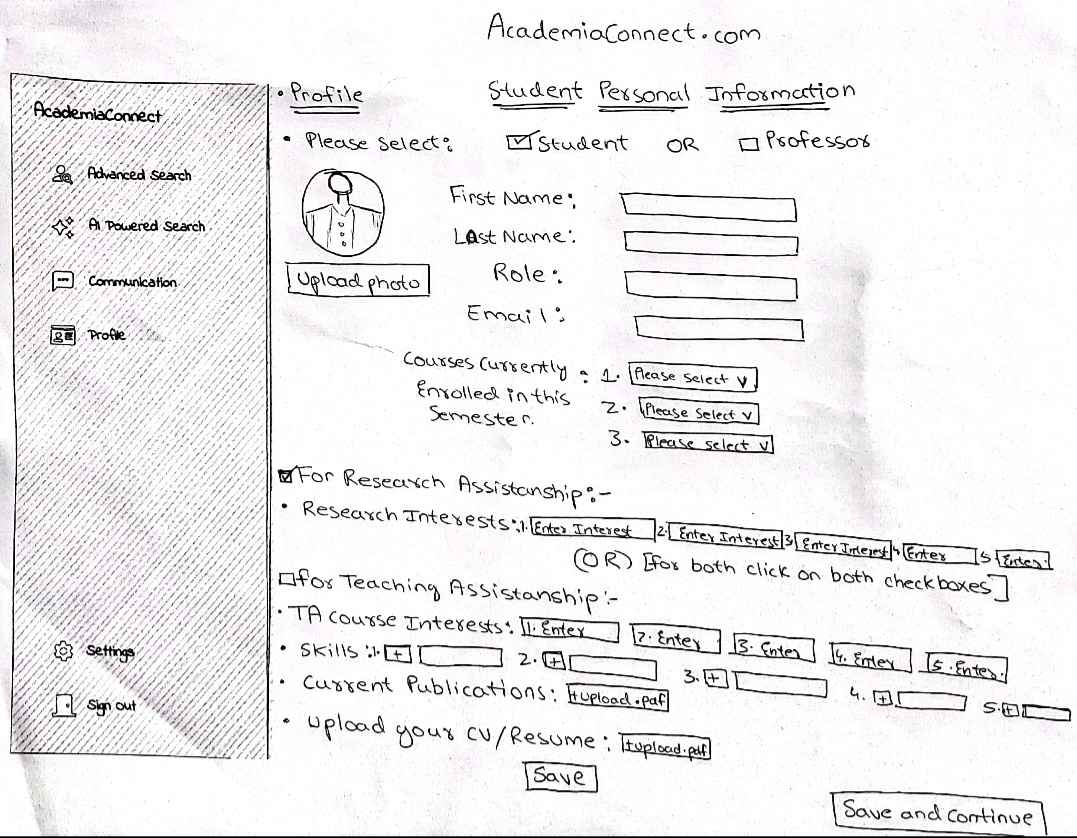 AcademiaConnect.com
AcademiaConnect
Advanced Search
AI Powered Search
Communication
Profile
Settings
Sign out
• Profile
Student Personal Information
• Please Select: Student OR Professor
Upload photo
First Name:
Last Name:
Role:
Email:
Courses Currently : 1. Please Select v
Enrolled in this 2. Please Select v
Semester. 3. Please select v
For Research Assistanship:-
• Research Interests: 1. Enter Interest 2. Enter Interest 3. Enter Interest 4. Enter 5. Enter.
(OR) [for both click on both checkboxes]
for Teaching Assistanship:-
• TA course Interests: 1. Enter 2. Enter 3. Enter 4. Enter 5. Enter.
• Skills: 1. + 2. + 3. + 4. + 5. +
• Current Publications: +upload.paf
• upload your CV/Resume: +upload.pdf
Save
Save and continue